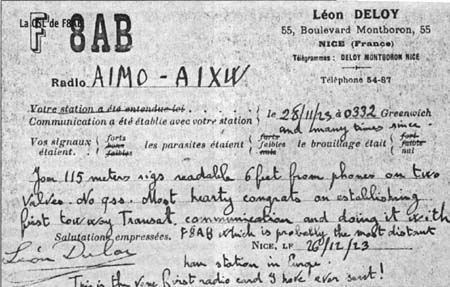 La QSL de F8AB
F 8AB
Léon DELOY
55, Boulevard Montboron, 55
NICE (France)
Télégrammes : DELOY MONTBORON NICE
Téléphone 54-87
Radio A1MO - A1XW
Votre station a été entendue ici . . . . . .
Communication a été établie avec votre station } le 28/11/23 à 0332 Greenwich
and many times since.
Vos signaux étaient. { forts bons faibles } les parasites étaient { forts faibles nuls } le brouillage était { fort faible nul
Your 115 meters sigs readable 6 feet from phones on two
valves. No qss. Most hearty congrats on establishing
first two way Transat. communication and doing it with
Salutations empressées. F8AB which is probably the most distant
Léon Deloy NICE, LE 26/12/23
ham station in Europe.
This is the very first radio card I have ever sent!